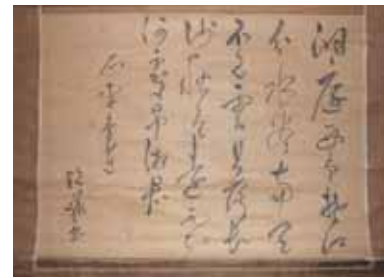 洞庭西望楚江
分水盡南天
不見雲日落長
沙秋色遠不知
何處弔湘君